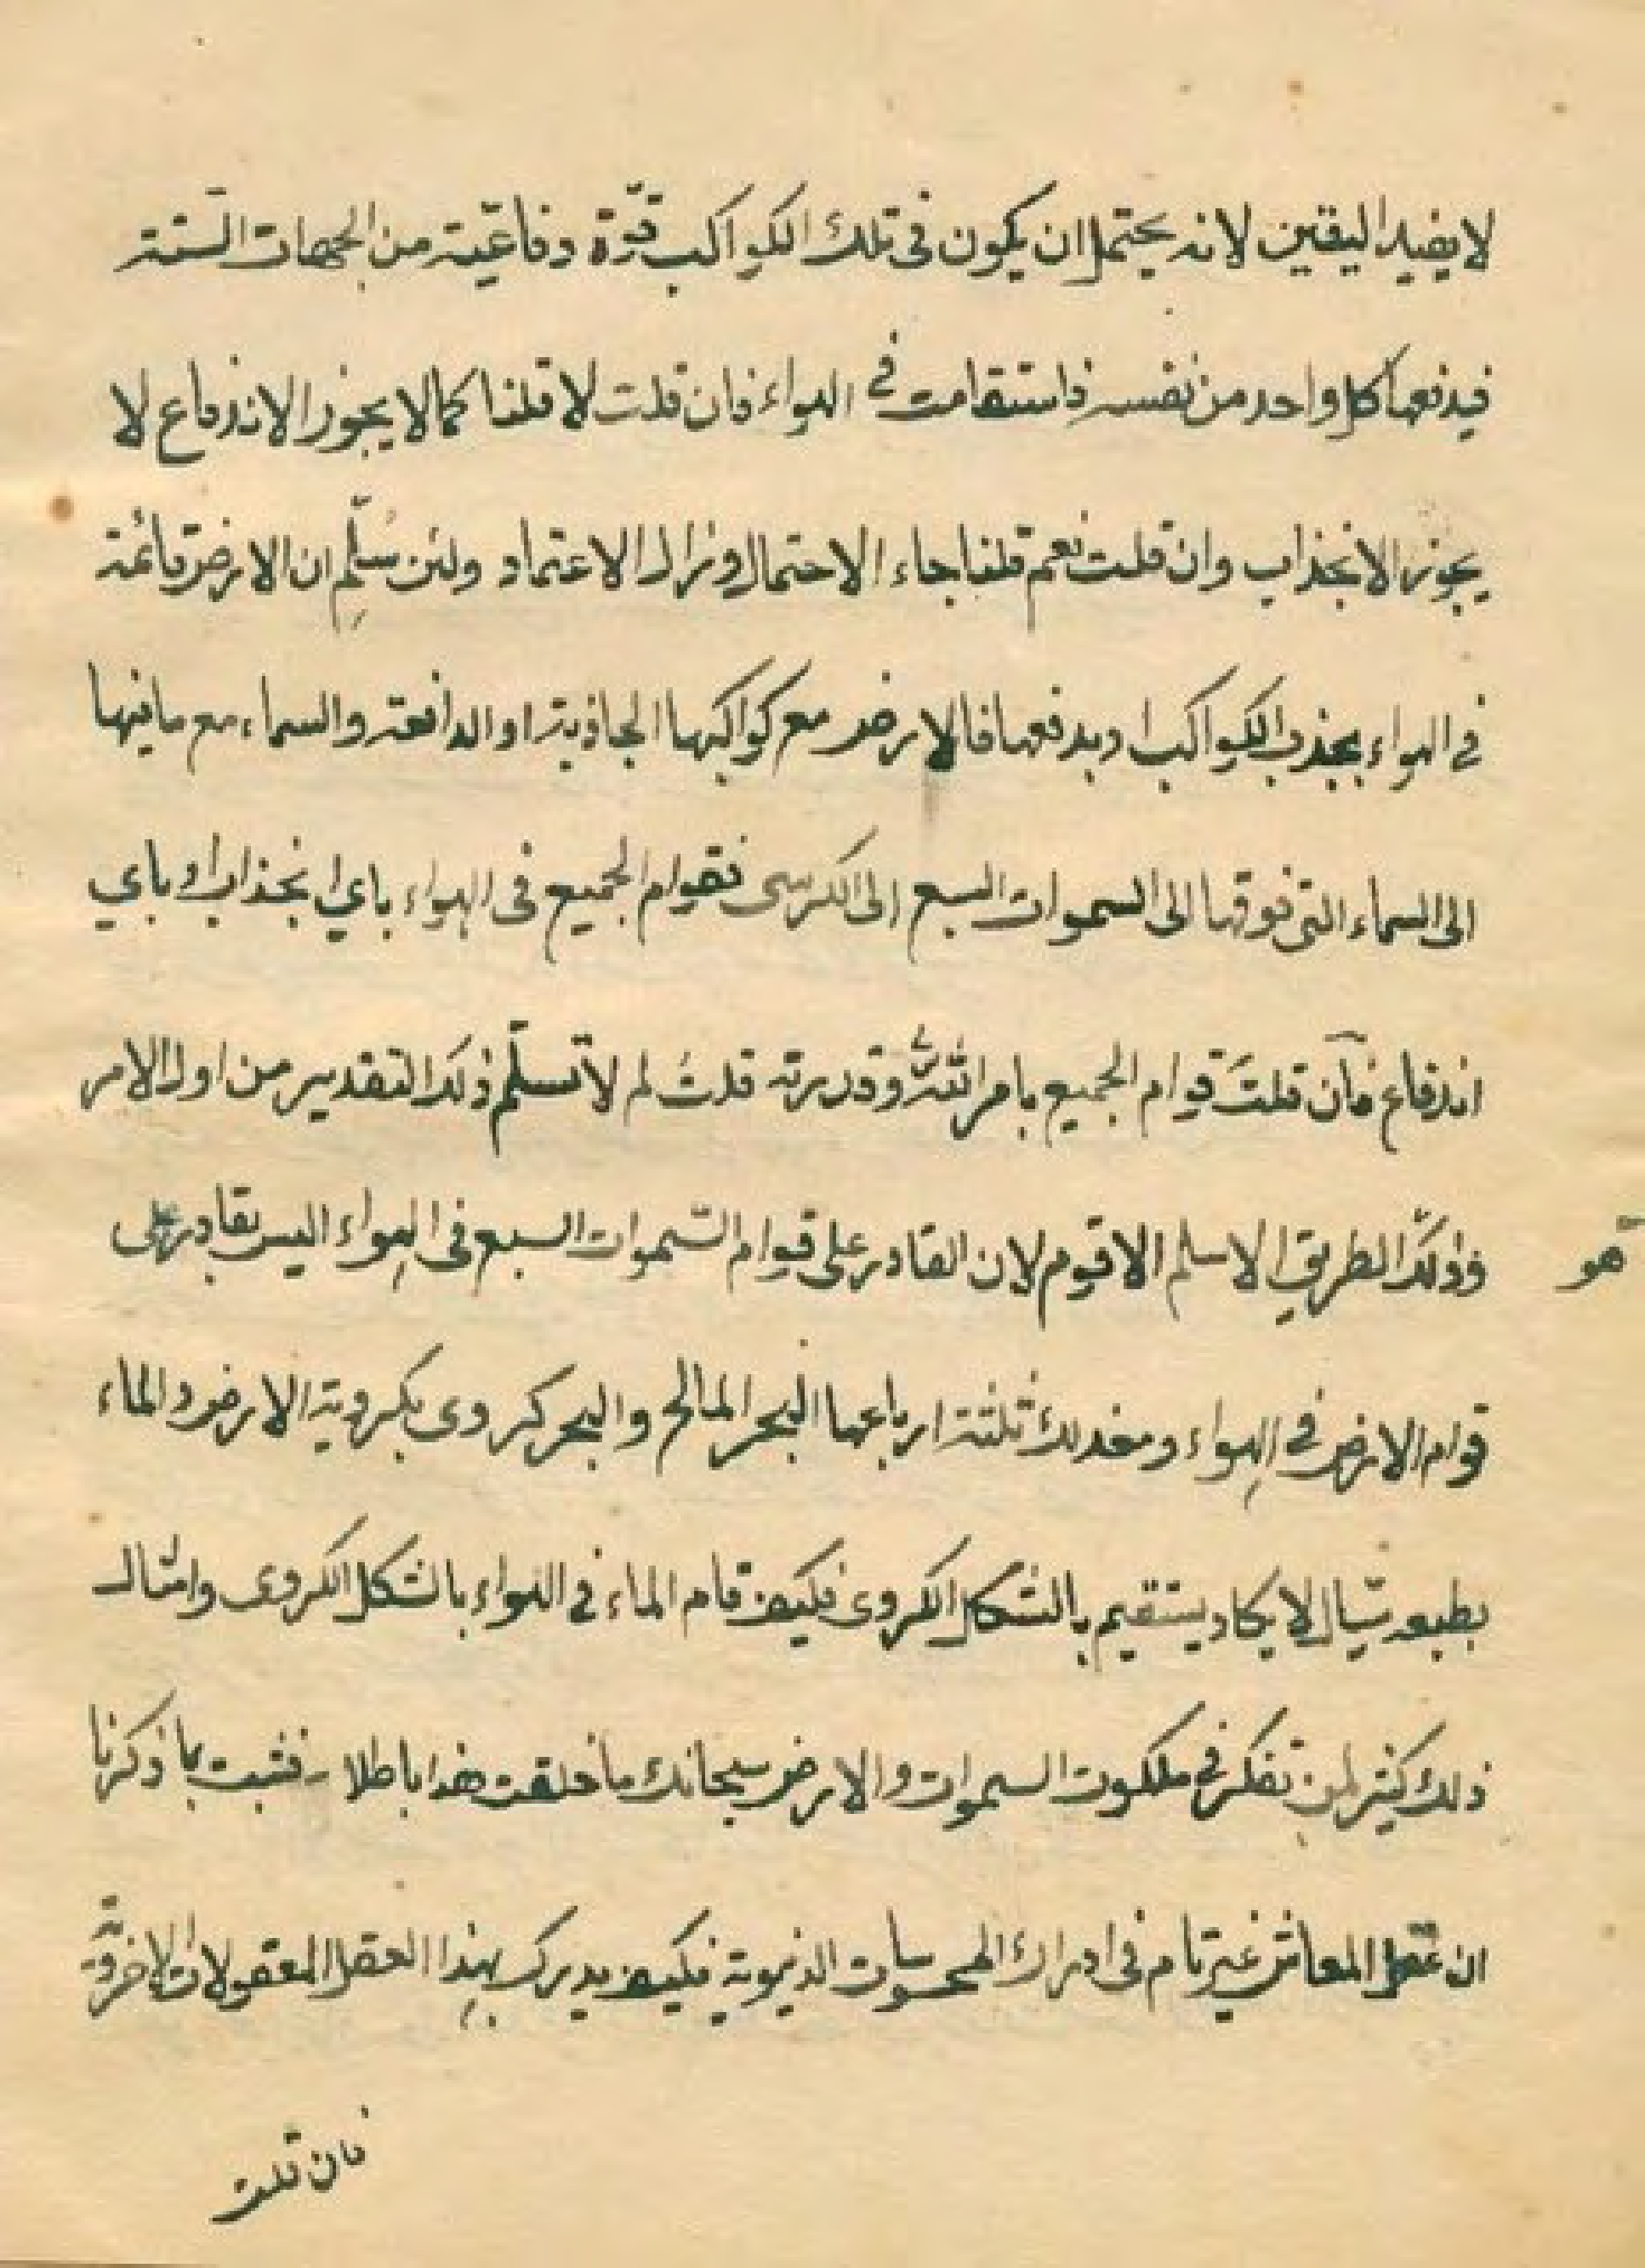 لا يفيد اليقين لانه يحتمل ان يكون في تلك الكواكب قوّة دفاعيّة من الجهات الستة
فيدفعها كل واحد من نفسه فاستقامت في الهواء فان قلت لا قلنا كما لا يجوز الاندفاع لا
يجوز الانجذاب وان قلت نعم قلنا جاء الاحتمال وزال الاعتماد ولئن سُلِّم ان الارض قائمة
في الهواء بجذب الكواكب او بدفعها فالارض مع كواكبها الجاذبة او الدافعة والسماء مع ما فيها
الى السماء التى فوقها الى السموات السبع الى الكرسى فقوام الجميع فى الهواء باي انجذاب او باي
اندفاع فان قلتَ قوام الجميع بامر الله وقدرته قلتُ لم لا تسلّم ذلك التقدير من اول الامر
وذلك الطريق الاسلم الاقوم لان القادر على قوام السّموات السبع فى الهواء اليس بقادر على
هو
قوام الارض في الهواء ومع ذلك ثلثة ارباعها البحر المالح والبحر كروى بكروية الارض والماء
بطبعه سيّال لا يكاد يستقيم بالشكل الكروى فكيف قام الماء في الهواء بالشكل الكروى وامثال
ذلك كثير لمن تفكر في ملكوت السموات والارض سبحانك ما خلقت هذا باطلا فثبت بما ذكرنا
ان عقل المعاش غير تام فى ادراك المحسوسات الدنيوية فكيف يدرك بهذا العقل المعقولات الاخروية
فان قلت